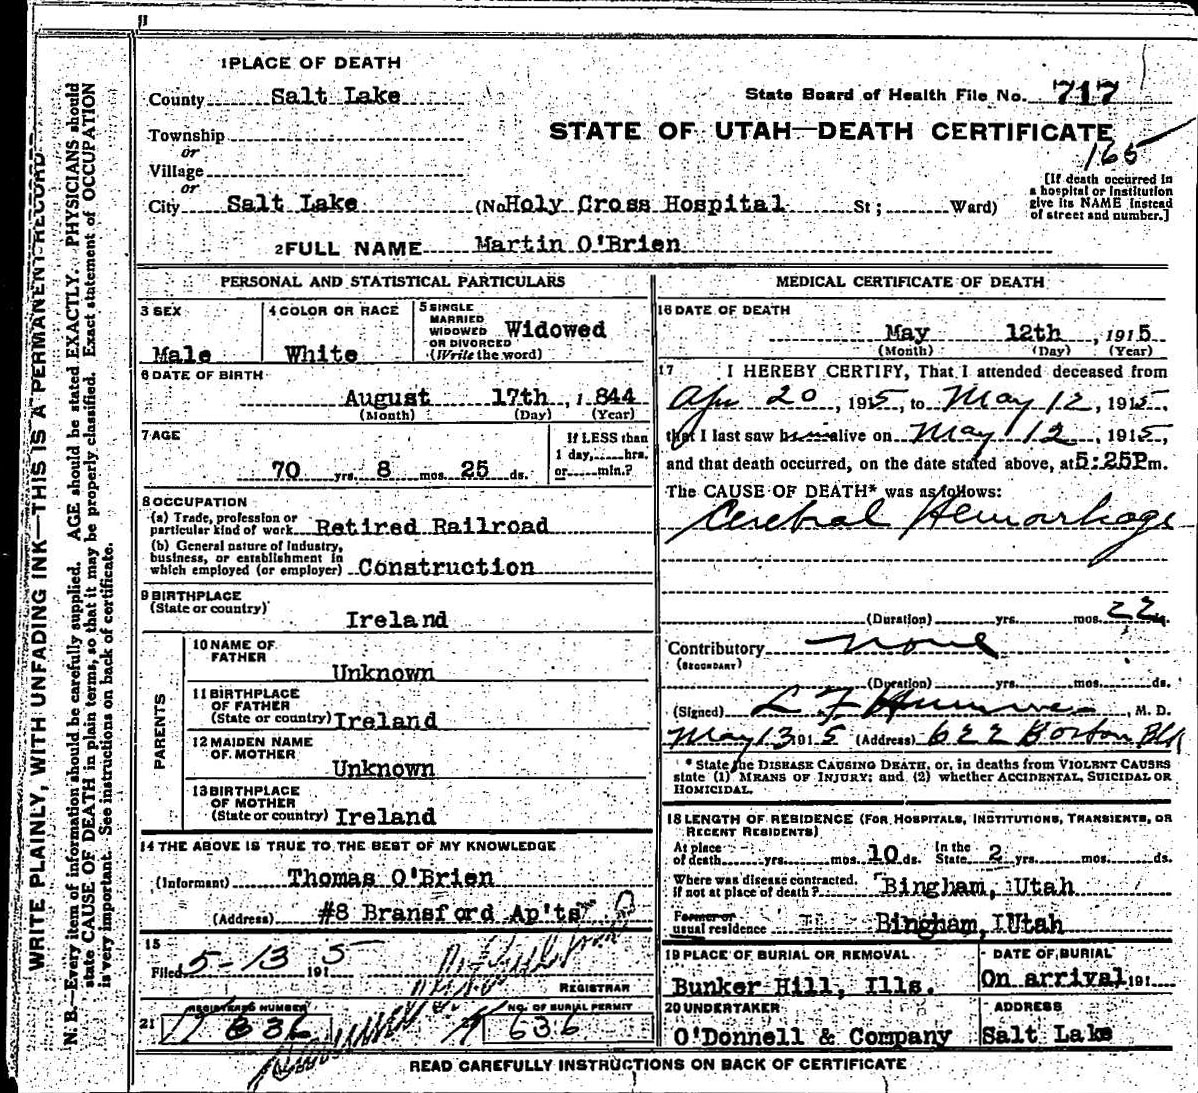 1 PLACE OF DEATH
County Salt Lake
State Board of Health File No. 717
Township
or
STATE OF UTAH—DEATH CERTIFICATE
165
Village
or
City Salt Lake (No Holy Cross Hospital St; Ward)
[If death occurred in
a hospital or institution
give its NAME instead
of street and number.]
2 FULL NAME Martin O'Brien
PERSONAL AND STATISTICAL PARTICULARS
3 SEX
Male
4 COLOR OR RACE
White
5 SINGLE
MARRIED
WIDOWED
OR DIVORCED
(Write the word)
Widowed
6 DATE OF BIRTH
August 17th, 1844
(Month) (Day) (Year)
7 AGE
70 yrs. 8 mos. 25 ds.
If LESS than
1 day, hrs.
or min.?
8 OCCUPATION
(a) Trade, profession or
particular kind of work Retired Railroad
(b) General nature of industry,
business, or establishment in
which employed (or employer) Construction
9 BIRTHPLACE
(State or country)
Ireland
PARENTS
10 NAME OF
FATHER
Unknown
11 BIRTHPLACE
OF FATHER
(State or country) Ireland
12 MAIDEN NAME
OF MOTHER
Unknown
13 BIRTHPLACE
OF MOTHER
(State or country) Ireland
14 THE ABOVE IS TRUE TO THE BEST OF MY KNOWLEDGE
(Informant) Thomas O'Brien
(Address) #8 Bransford Ap'ts
15
Filed 5-13 1915
REGISTRAR
21
REGISTERED NUMBER
836
NO. OF BURIAL PERMIT
636
MEDICAL CERTIFICATE OF DEATH
16 DATE OF DEATH
May 12th, 1915
(Month) (Day) (Year)
17 I HEREBY CERTIFY, That I attended deceased from
Apr 20, 1915, to May 12, 1915,
that I last saw h alive on May 12, 1915,
and that death occurred, on the date stated above, at 5:25P m.
The CAUSE OF DEATH* was as follows:
Cerebral Hemorrhage
(Duration) yrs. mos. 22 ds.
Contributory none
(SECONDARY)
(Duration) yrs. mos. ds.
(Signed) L F , M. D.
May 13 1915 (Address) 622 Boston Blk
* State the DISEASE CAUSING DEATH, or, in deaths from VIOLENT CAUSES
state (1) MEANS OF INJURY; and (2) whether ACCIDENTAL, SUICIDAL OR
HOMICIDAL.
18 LENGTH OF RESIDENCE (FOR HOSPITALS, INSTITUTIONS, TRANSIENTS, OR
RECENT RESIDENTS)
At place
of death yrs. mos. 10 ds. In the
State 2 yrs. mos. ds.
Where was disease contracted,
if not at place of death? Bingham, Utah
Former or
usual residence Bingham, Utah
19 PLACE OF BURIAL OR REMOVAL
Bunker Hill, Ills.
DATE OF BURIAL
On arrival 191
20 UNDERTAKER
O'Donnell & Company
ADDRESS
Salt Lake
READ CAREFULLY INSTRUCTIONS ON BACK OF CERTIFICATE
WRITE PLAINLY, WITH UNFADING INK—THIS IS A PERMANENT RECORD
N. B.—Every item of information should be carefully supplied. AGE should be stated EXACTLY. PHYSICIANS should
state CAUSE OF DEATH in plain terms, so that it may be properly classified. Exact statement of OCCUPATION
is very important. See instructions on back of certificate.